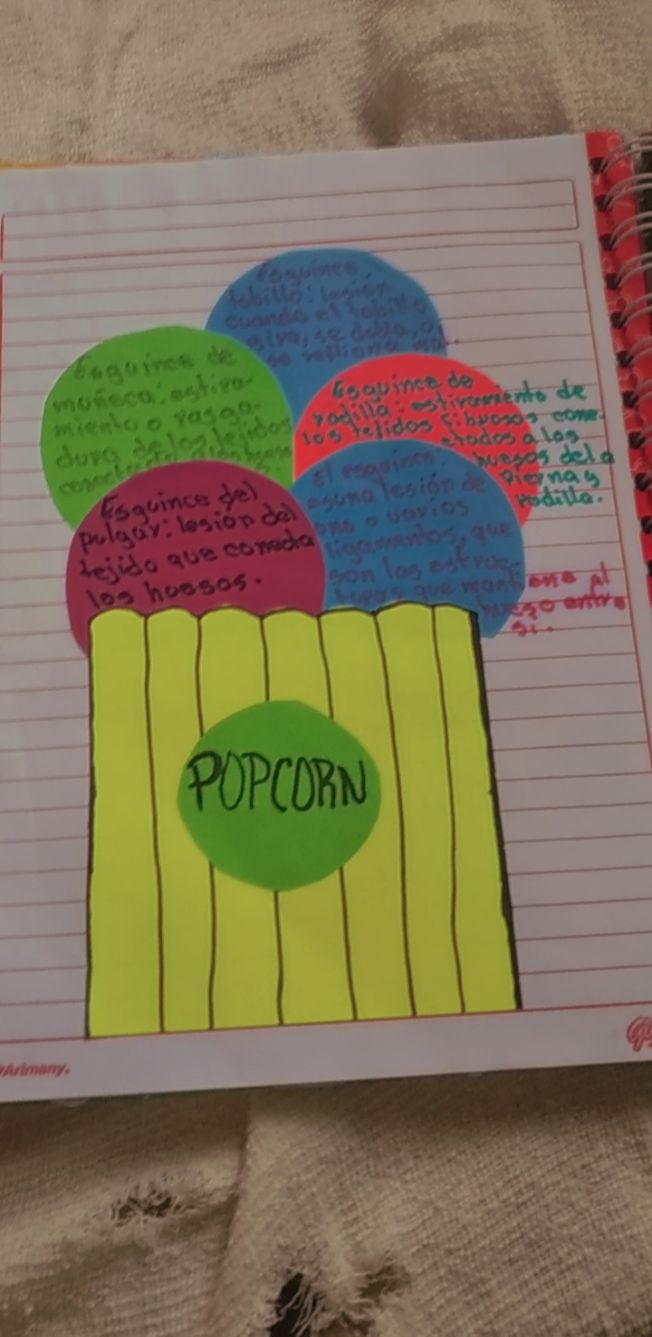 Esguince
tobillo: lesión
cuando el tobillo
gira, se dobla, o
se
Esguince de
muñeca: estira-
miento o rasga-
dura de los tejidos
Esguince de
rodilla: estiramiento de
los tejidos fibrosos cone-
ctados a los
huesos de la
Pierna y
rodilla.
Esguince del
pulgar: lesión del
tejido que conecta
los huesos.
El esguince
es una lesión de
uno o varios
ligamentos, que
son las estruc-
turas que mantiene al
hueso entre
si.
POPCORN
Arimany.